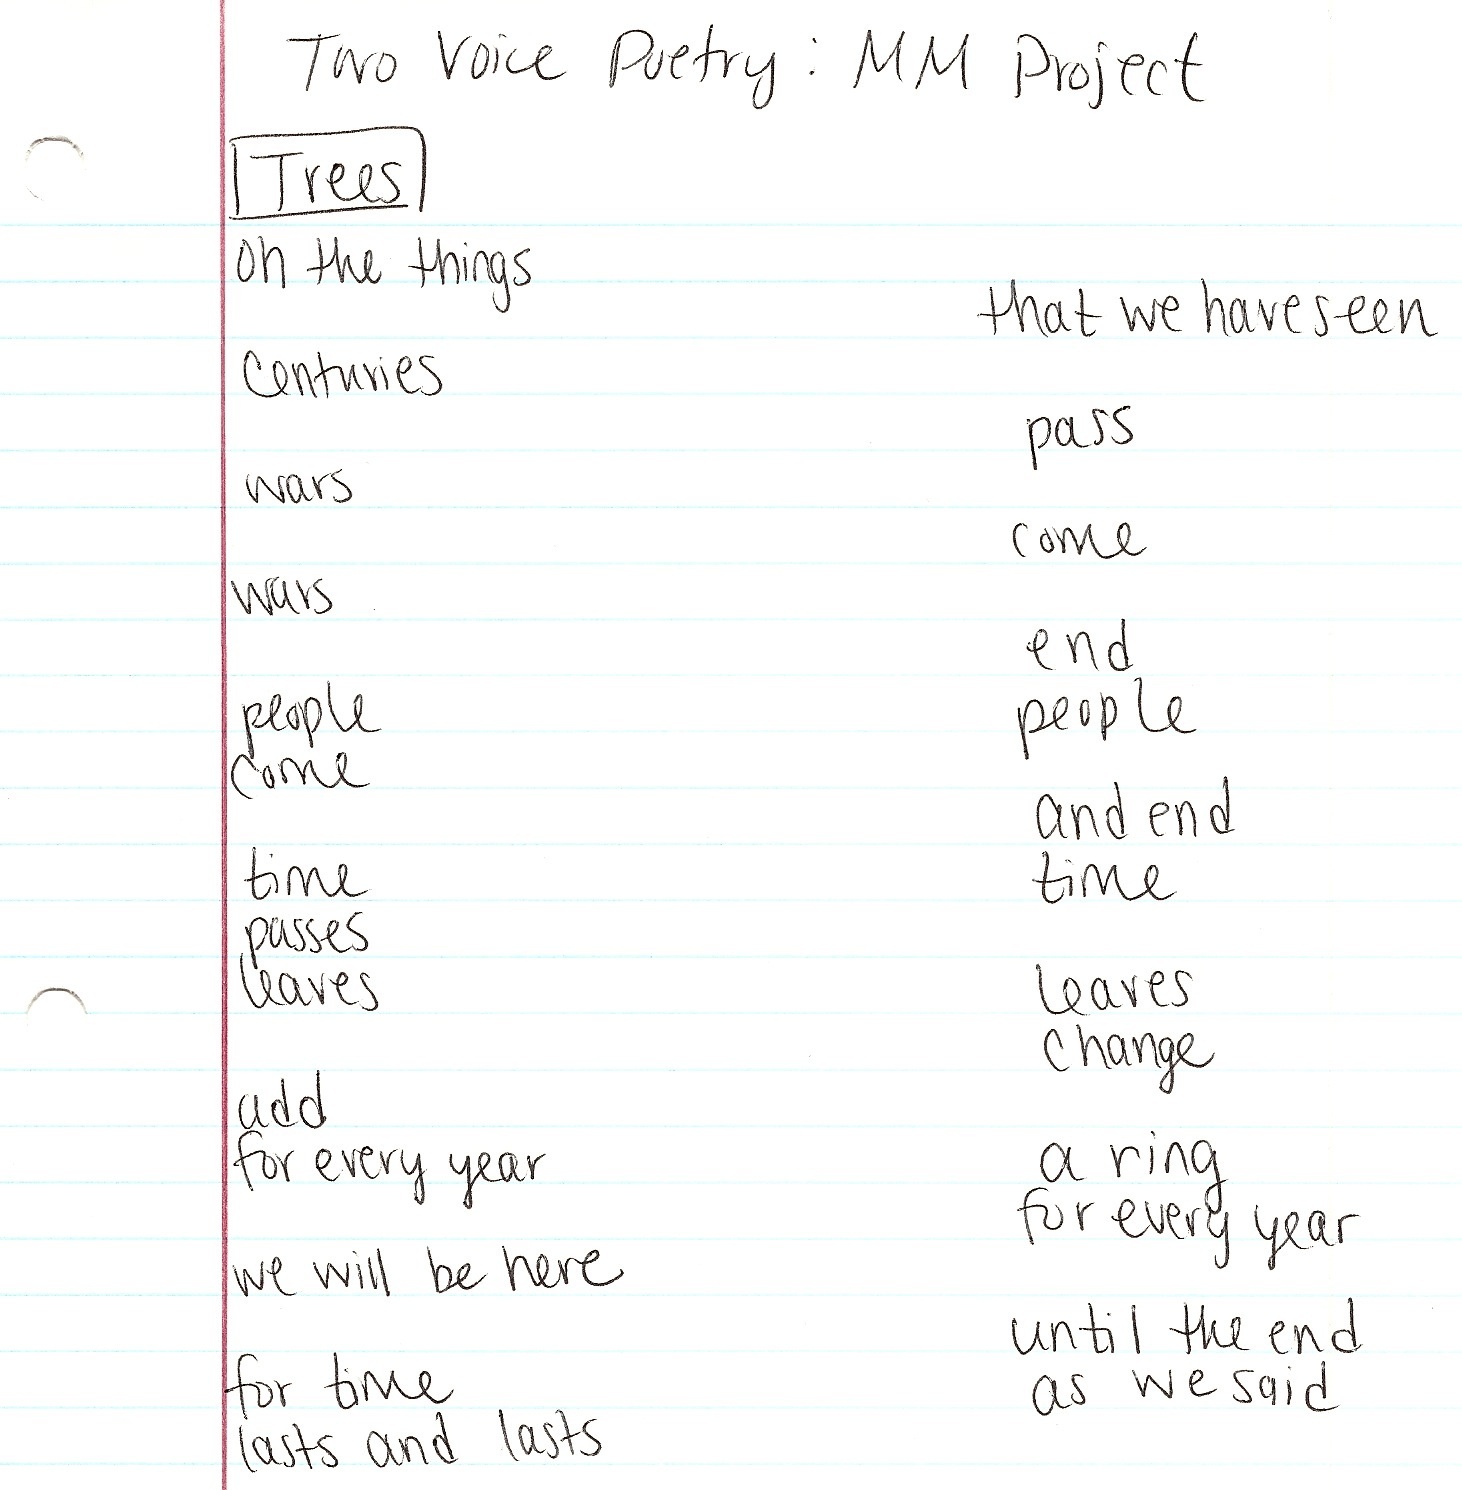 Two Voice Poetry: MM Project
Trees
oh the things
that we have seen
Centuries
pass
wars
come
wars
end
people people
come
and end
time time
passes
leaves leaves
change
add
for every year a ring
for every year
we will be here
until the end
for time as we said
lasts and lasts